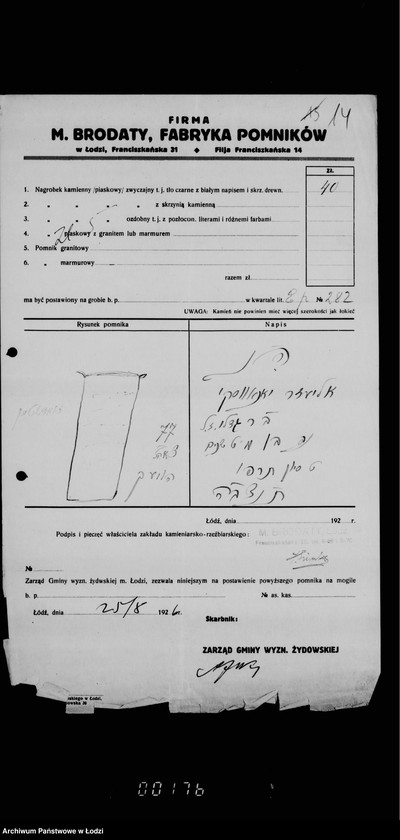 14
FIRMA
M. BRODATY, FABRYKA POMNIKÓW
w Łodzi, Franciszkańska 31 ◆ Filja Franciszkańska 14
Zł.
1. Nagrobek kamienny /piaskowy/ zwyczajny t. j. tło czarne z białym napisem i skrz. drewn. 40
2. " " " " z skrzynią kamienną
3. " " ozdobny t. j. z pozłocon. literami i różnemi farbami
4. " piaskowy z granitem lub marmurem
5. Pomnik granitowy
6. " marmurowy
razem zł.
ma być postawiony na grobie b. p. w kwartale lit. № 282
UWAGA: Kamień nie powinien mieć więcej szerokości jak łokieć
Rysunek pomnika
Napis
פ נ
אליעזר
ב ר
נ ב מ ט שנים
ט סיון תרפו
ת נ צ ב ה
Łódź, dnia 192 r.
Podpis i pieczęć właściciela zakładu kamieniarsko-rzeźbiarskiego:
M. BRODATY
№
Zarząd Gminy wyzn. żydwskiej m. Łodzi, zezwala niniejszym na postawienie powyższego pomnika na mogile
b. p. № as. kas.
Łódź, dnia 25/8 1926 r.
Skarbnik:
ZARZĄD GMINY WYZN. ŻYDOWSKIEJ
00176
Archiwum Państwowe w Łodzi